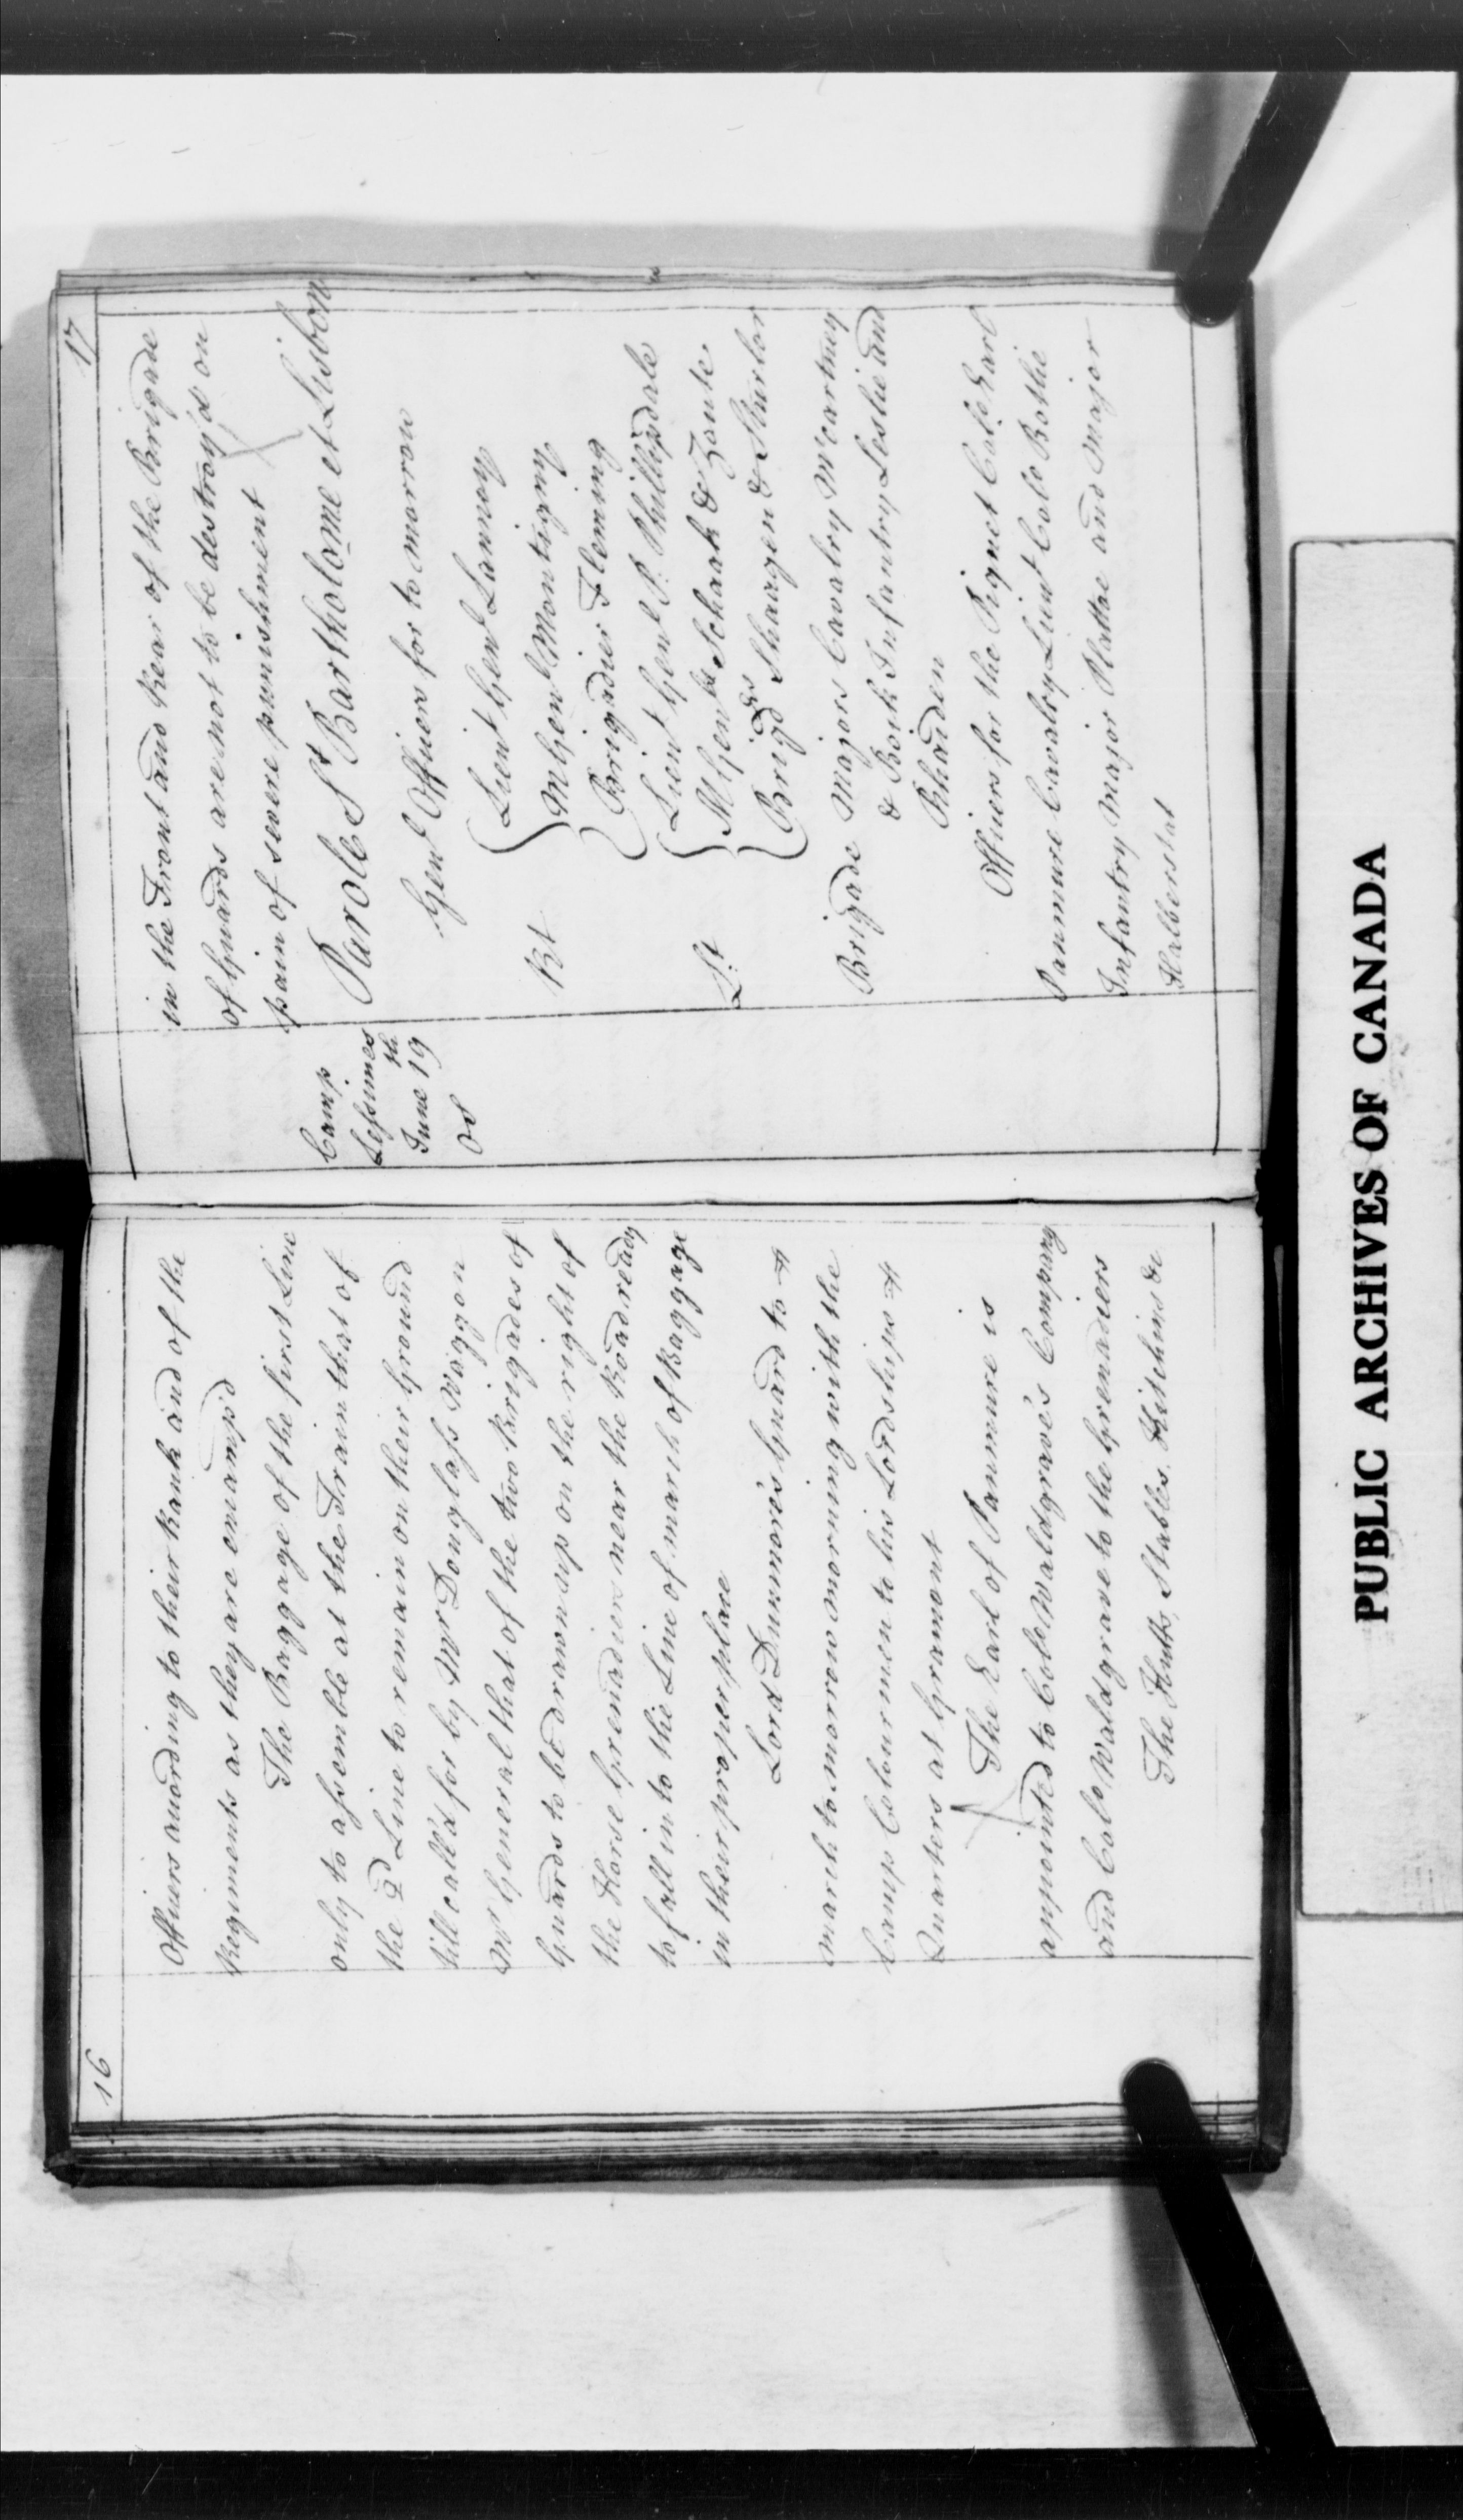 16
Officers according to their Rank and of the
Regiments as they are encamp'd
The Baggage of the first Line
only to assemble at the Train that of
the 2d Line to remain on their Ground
till call'd for by Mr Douglass Waggon
Mr General that of the two Brigades of
Guards to be drawn up on the right of
the Horse Grenadiers near the Road ready
to fall in to the Line of march of Baggage
in their proper place
Lord Dunmore's Guard to
march to morrow morning with the
Camp Colour men to his Lordships
Quarters at Gramont
The Earl of Panmure is
appointed to Colo Waldgrave's Company
and Colo Waldgrave to the Grenadiers
The Hutts, Stables, Kitchins &c
17
in the Front and Rear of the Brigade
of Guards are not to be destroy'd on
pain of severe punishment
Camp
Lessines
June 19th
OS
Parole St Bartholome et Lisbon
Genl Officers for to morrow
Rt
Lieut Genl Lannoy
M Genl Montigny
Brigadier Fleming
Lt
Lieut Genl P. Phillipsdale
M Genls Schaak & Zante
Brigdrs Shaagen & Sturler
Brigade Majors Cavalry McCartney
& Boik Infantry Leslie and
Rhaden
Officers for the Piquet Colo Earl
Panmure Cavalry Lieut Colo Bothe
Infantry Major Plattae and Major
Halberstat
PUBLIC ARCHIVES OF CANADA